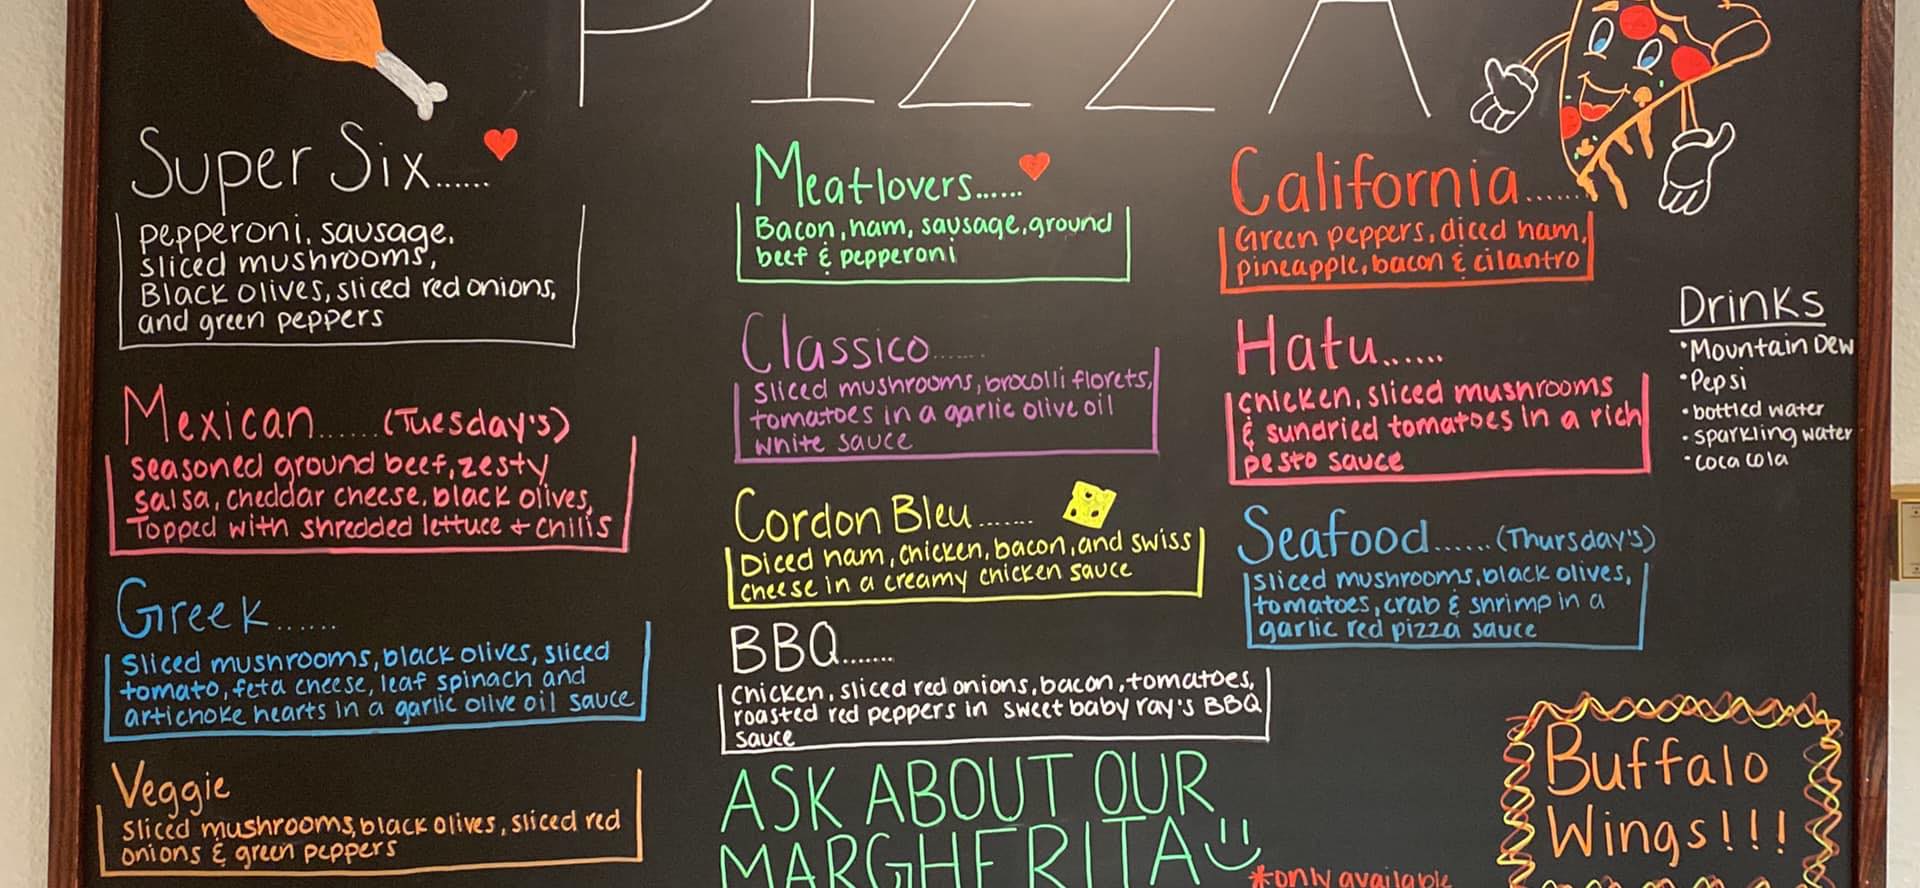 PIZZA
Super Six......
pepperoni, sausage,
sliced mushrooms,
Black olives, sliced red onions,
and green peppers
Mexican...... (Tuesday's)
seasoned ground beef, zesty
salsa, cheddar cheese, black olives,
Topped with shredded lettuce + chilis
Greek......
sliced mushrooms, black olives, sliced
tomato, feta cheese, leaf spinach and
artichoke hearts in a garlic olive oil sauce
Veggie
sliced mushrooms, black olives, sliced red
onions & green peppers
Meatlovers......
Bacon, ham, sausage, ground
beef & pepperoni
Classico.......
sliced mushrooms, brocolli florets,
tomatoes in a garlic olive oil
white sauce
Cordon Bleu.......
Diced ham, chicken, bacon, and swiss
cheese in a creamy chicken sauce
BBQ.......
chicken, sliced red onions, bacon, tomatoes,
roasted red peppers in sweet baby ray's BBQ
sauce
ASK ABOUT OUR
MARGHERITA
*only available
California......
Green peppers, diced ham,
pineapple, bacon & cilantro
Hatu......
chicken, sliced mushrooms
& sundried tomatoes in a rich
pesto sauce
Seafood...... (Thursday's)
sliced mushrooms, black olives,
tomatoes, crab & shrimp in a
garlic red pizza sauce
Drinks
•Mountain Dew
•Pepsi
•bottled water
•sparkling water
•coca cola
Buffalo
Wings!!!